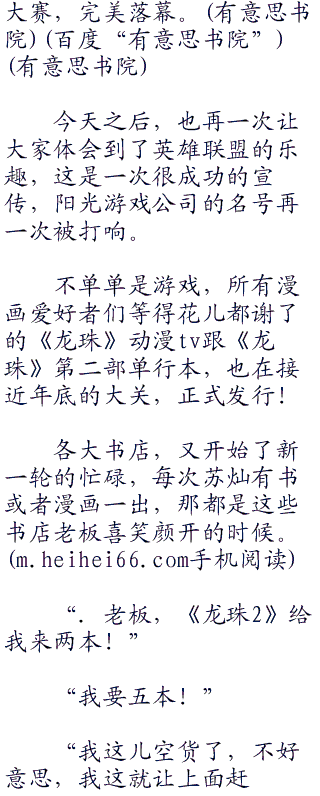 大赛，完美落幕。(有意思书
院)(百度“有意思书院”)
(有意思书院)
今天之后，也再一次让
大家体会到了英雄联盟的乐
趣，这是一次很成功的宣
传，阳光游戏公司的名号再
一次被打响。
不单单是游戏，所有漫
画爱好者们等得花儿都谢了
的《龙珠》动漫tv跟《龙
珠》第二部单行本，也在接
近年底的大关，正式发行！
各大书店，又开始了新
一轮的忙碌，每次苏灿有书
或者漫画一出，那都是这些
书店老板喜笑颜开的时候。
(m.heihei66.com手机阅读)
“．老板，《龙珠2》给
我来两本！”
“我要五本！”
“我这儿空货了，不好
意思，我这就让上面赶